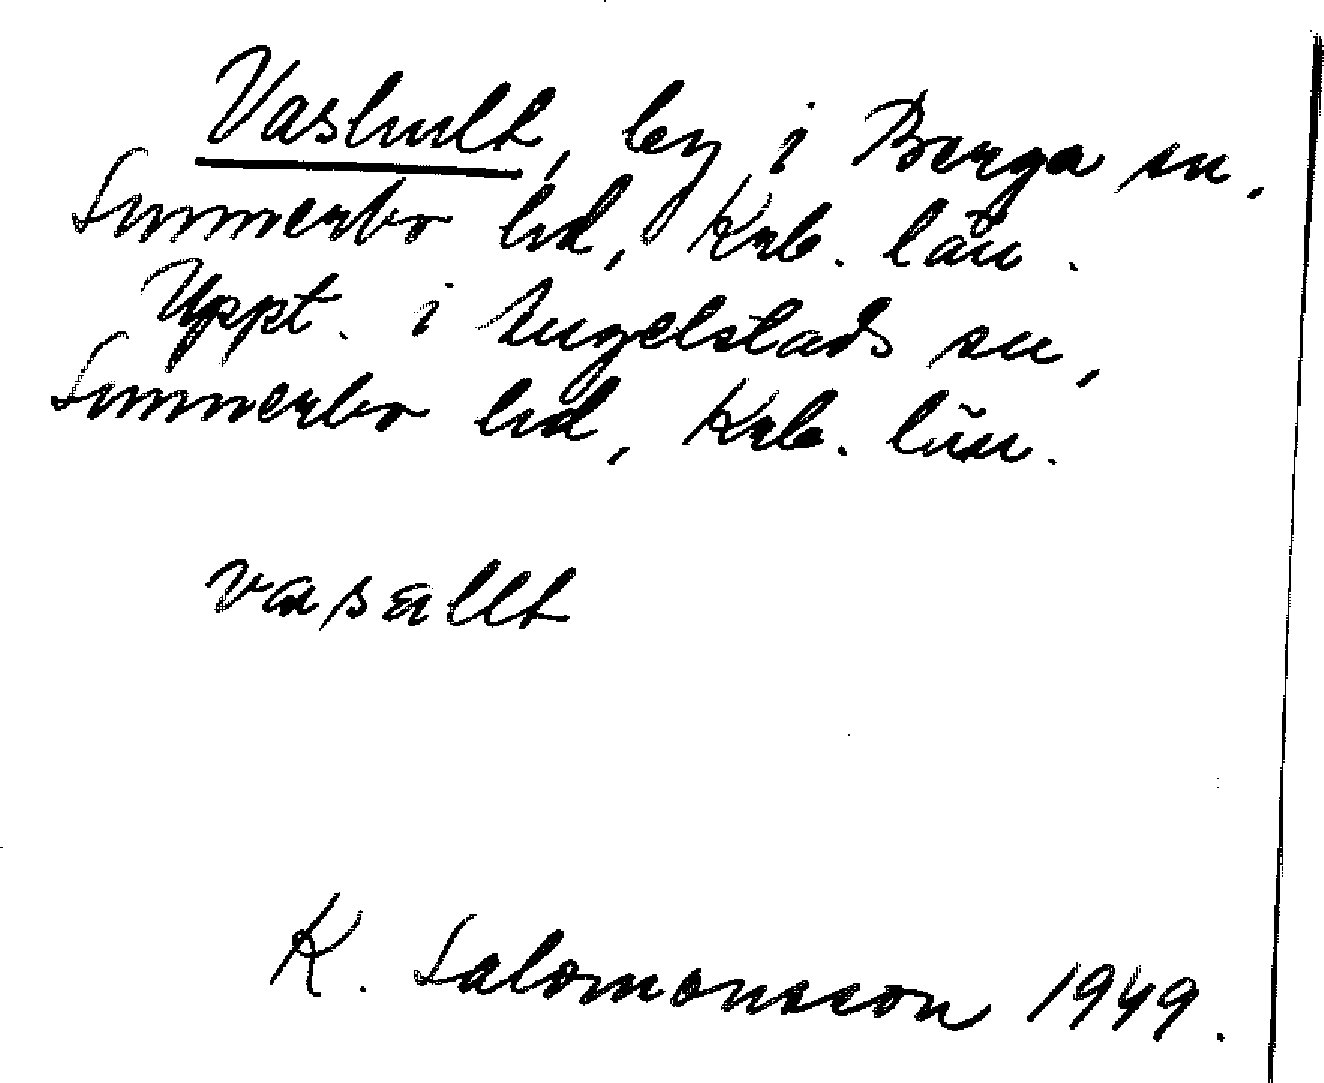 Vashult, by i Berga sn,
Sunnerbo hd, Krb. län.
Uppt. i Angelstads sn,
Sunnerbo hd, Krb. län.
vasallt
K. Salomonsson 1949.